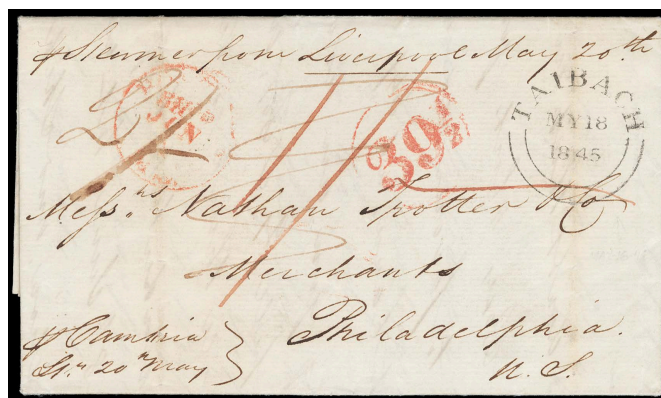 p Steamer from Liverpool May 20th
TAIBACH
MY 18
1845
JUN
39
Messrs Nathan Trotter & Co
Merchants
Philadelphia.
U. S.
p Cambria
Str 20th May